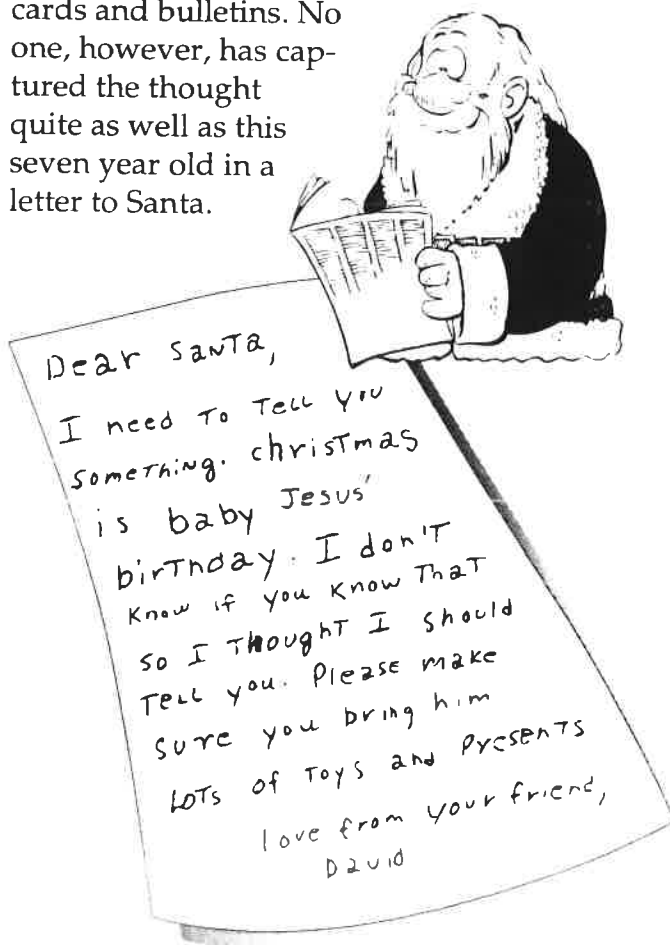 cards and bulletins. No
one, however, has cap-
tured the thought
quite as well as this
seven year old in a
letter to Santa.
Dear Santa,
I need to tell you
something. christmas
is baby Jesus'
birthday. I don't
know if you know that
so I thought I should
tell you. Please make
sure you bring him
lots of toys and presents
love from your friend,
David